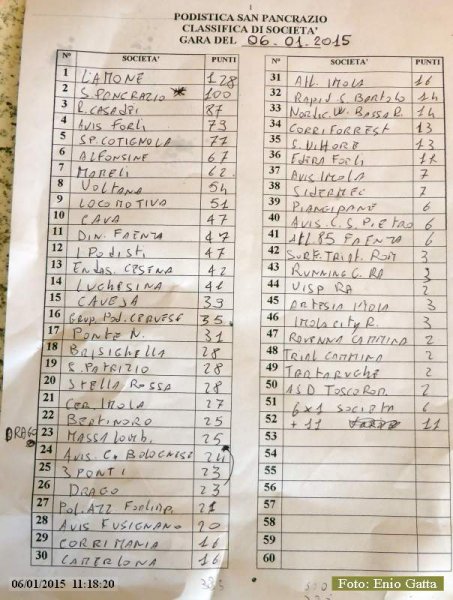 PODISTICA SAN PANCRAZIO
CLASSIFICA DI SOCIETA'
GARA DEL 06.01.2015
N° SOCIETA' PUNTI
1 L'AMONE 128
2 S. PONCRAZIO 100
3 R. CASADEI 87
4 AVIS FORLI 79
5 SP. COTIGNOLA 77
6 ALFONSINE 67
7 MAMELI 62
8 VOLTANA 54
9 LOCOMOTIVA 51
10 CAVA 47
11 DIN. FAENZA 47
12 I PODISTI 47
13 ENDAS CESENA 42
14 LUGHESINA 41
15 CAVEJA 39
16 GRUP. POD. CERVESE 35
17 PONTE N. 31
18 BRISIGHELLA 28
19 S. PATRIZIO 28
20 STELLA ROSSA 28
21 CER. IMOLA 27
22 BERTINORO 25
DRAGO
23 MASSA LOMB. 25
24 AVIS C. BOLOGNESE 24
25 3 PONTI 23
26 DRAGO 23
27 POL. AZZ. FORLIMP. 21
28 AVIS FUSIGNANO 20
29 CORRIMANIA 16
30 CAMERLONA 16
N° SOCIETA' PUNTI
31 ATL. IMOLA 16
32 RAPID S. BARTOLO 14
33 NORDIC W. BASSA R. 14
34 CORRIFORREST 13
35 S. VITTORE 13
36 EDERA FORLI
37 AVIS IMOLA 7
38 SIDERMEC 7
39 PIANGIPANE 6
40 AVIS C. S. PIETRO 6
41 ATL. 85 FAENZA 6
42 SURF. TRIAT. ROM 3
43 RUNNING C. RA 3
44 UISP RA 3
45 ARTESIA IMOLA 3
46 IMOLA CITY R. 3
47 RAVENNA CAMMINA 2
48 TRIAL CAMMINA 2
49 TARTARUGHE 2
50 ASD TOSCOROM. 2
51 6x1 SOCIETA 6
52 + 11 11
53
54
55
56
57
58
59
60
06/01/2015 11:18:20
Foto: Enio Gatta